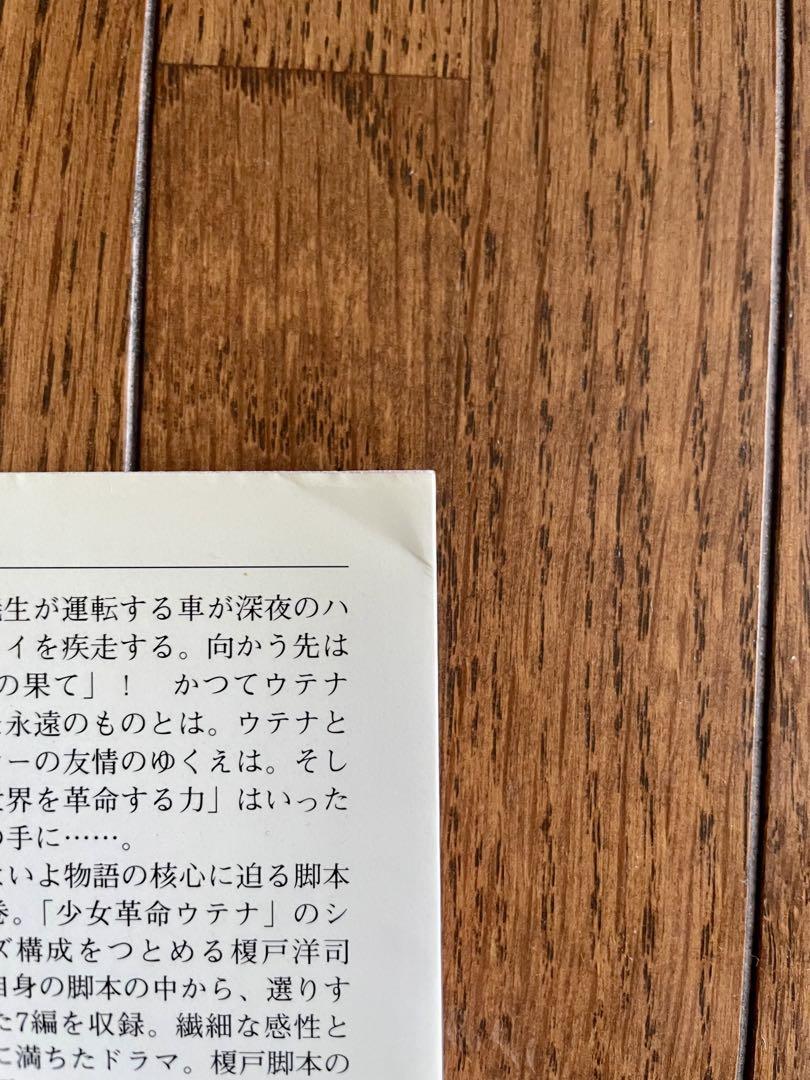 生が運転する車が深夜のハ
イを疾走する。向かう先は
の果て」！　かつてウテナ
永遠のものとは。ウテナと
ーの友情のゆくえは。そし
界を革命する力」はいった
の手に……。
よいよ物語の核心に迫る脚本
巻。「少女革命ウテナ」のシ
ズ構成をつとめる榎戸洋司
自身の脚本の中から、選りす
た7編を収録。繊細な感性と
に満ちたドラマ。榎戸脚本の